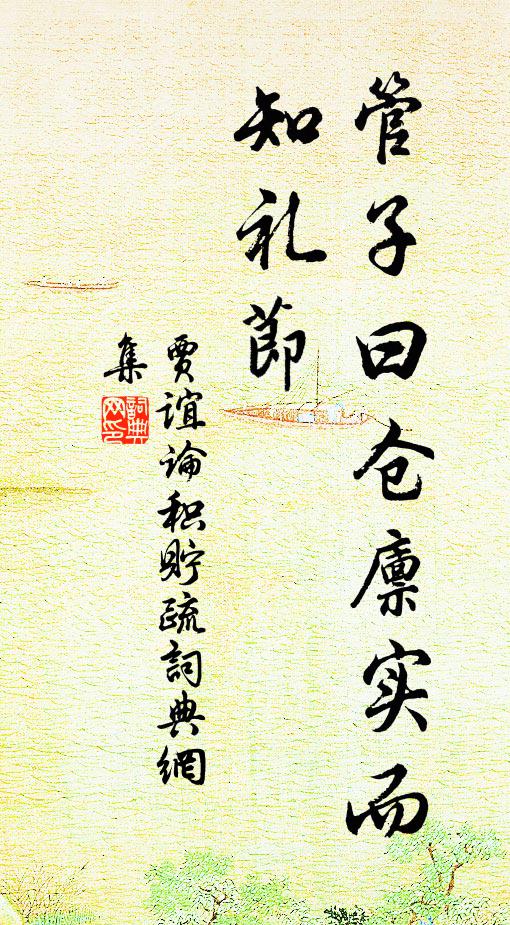 管子曰仓廪实而
知礼節
賈誼论积貯疏詞典網
集
詞典
网印